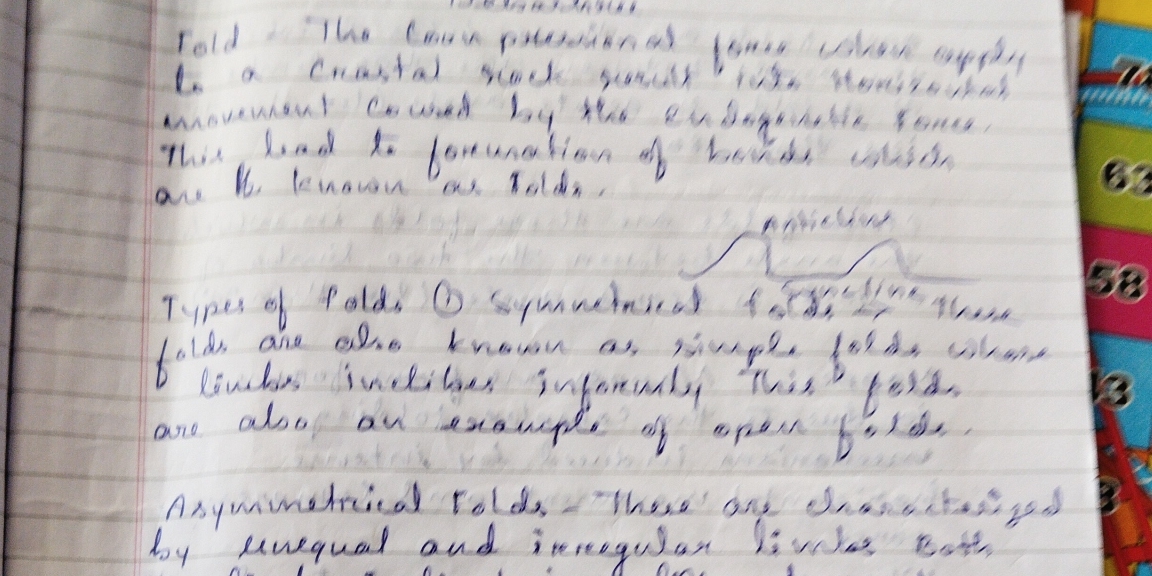 Fold - The Compressional force when apply
to a Crustal rock result into Horizontal
movement Caused by the endogenetic Force.
This lead to formation of bends which
are known as Folds.
Anticline
Syncline
Types of Folds ① Symmetrical folds These
folds are also known as simple folds whose
limbs inclines informly This folds
are also an example of open folds.
Asymmetrical Folds - These are characterized
by unequal and irregular limbs Both
63
58